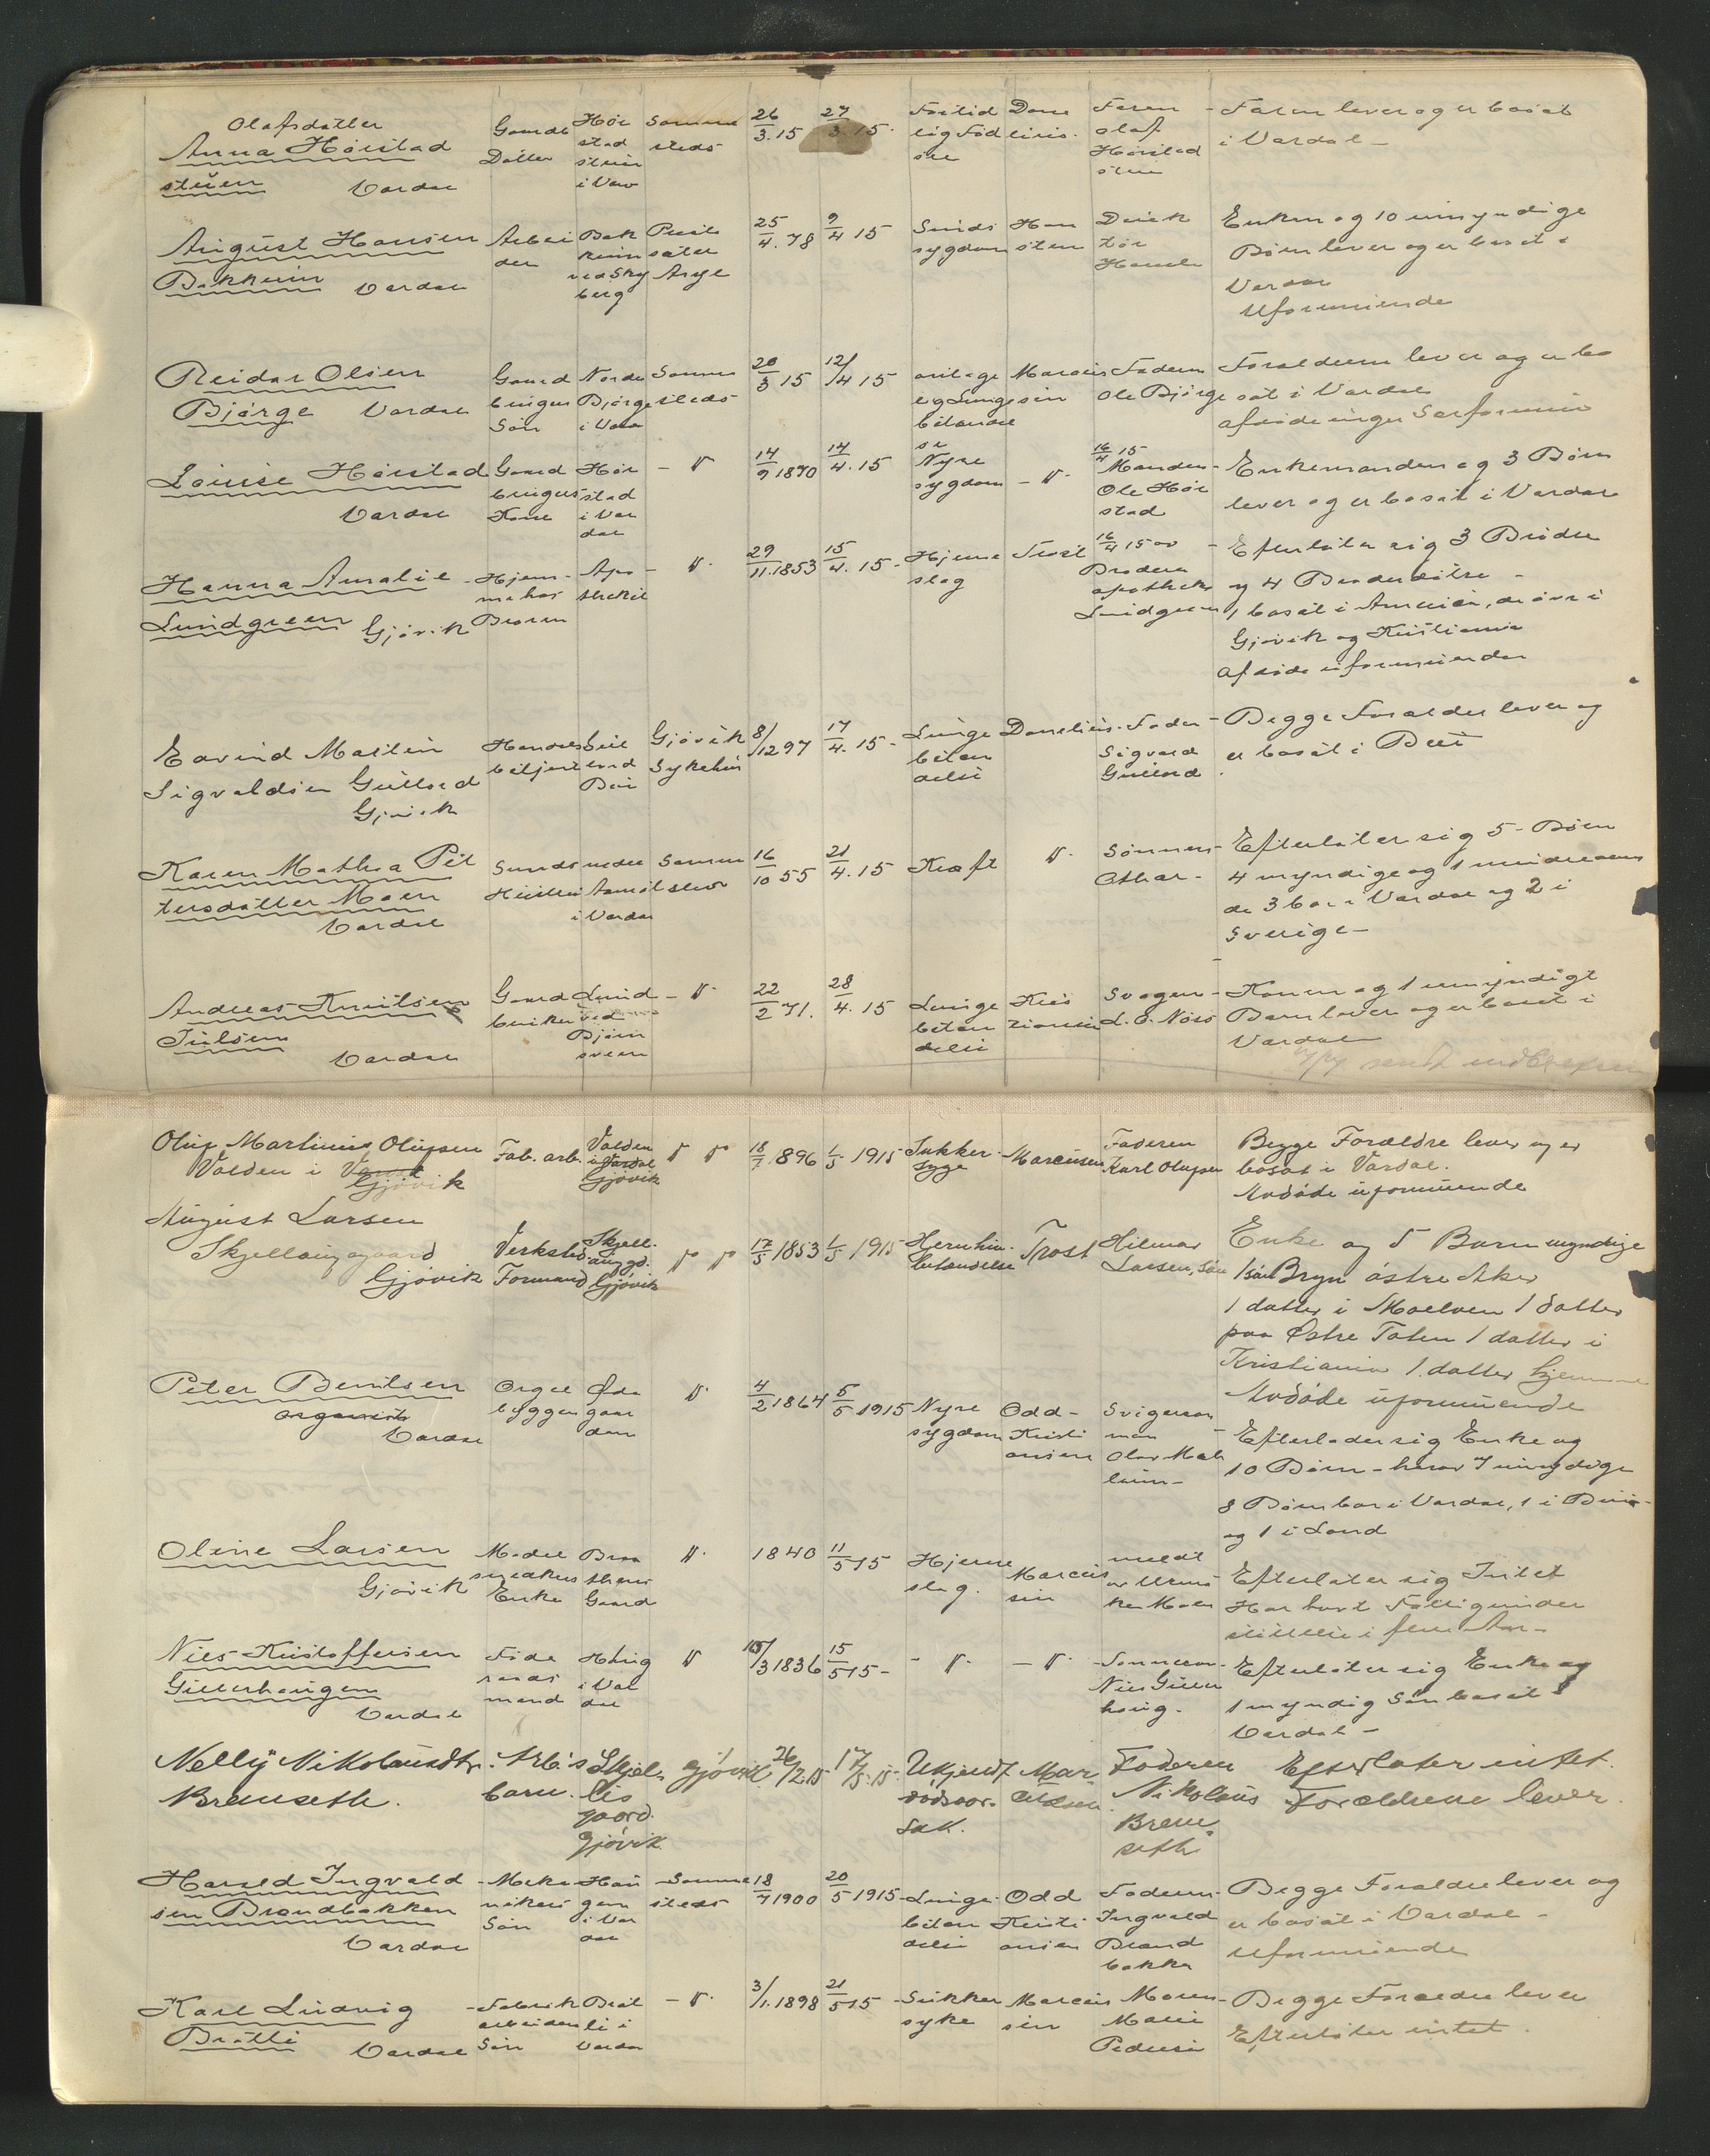 Olafsdatter
Anna Hörstad
stuen Vardal
Gaardb
Datter
Hör
stad
stuen
i Var
Samme
steds
26/3.15
27/3.15.
Fortid
lig Föd
sel
Dane
lius.
Faren
Olaf
Hörstad
stuen
- Faren lever og er bosat
i Vardal -
August Hansen
Bakkeim Vardal
Arbei
der
Bak
keim
ved Sky
berg
Prest
sæter
25/4.78
9/4 15
Sinds
sygdom
Han
sten
Direk
tör
Enken og 10 umyndige
Börn lever og er bosat i
Vardal
Uformuende
Reidar Olsen
Björge Vardal
Gaard
bruger
Sön
Nordre
Björge
i Vardal
Samme
steds
20/3 15
12/4 15
Lunge
betændel
se
Marcus
sen
Faderen
Ole Björge
Forælderne lever og er bo
sat i Vardal
Louise Hörstad
Vardal
Gaard
brugers
Kone
Hör
stad
i Var
dal
- "
14/9 1870
14/4.15
Nyre
sygdom
- " -
16/4 15
Manden
Ole Hör
stad
- Enkemanden og 3 Börn
lever og er bosat i Vardal
Hanna Amalie
Lundgreen Gjövik
- Hjem-
me hos
Broren
Apo
theket
- "
29/11.1853
15/4.15 -
Hjerne
slag
Trost
16/4 15 av
Broderen
apotheker
Lundgreen
- Efterlater sig 3 Brödre
og 4 Broderdötre -
1 bosat i Amerika, de övre i
Gjövik og Kristiania
Eavind Martin
Sigvaldsen Gullord
Gjövik
Handels
betjent
Gull
ord
Biri
Gjövik
Sykehus
8/12 97
17/4.15 -
Lunge
betæn
delse
Danelius.
Fader
Sigvald
Gullord
- Begge Forælder lever og
er bosat i Biri
Karen Mathea Pet
tersdatter Moen
Vardal
nedre
i Vardal
Samme
sted
16/10 55
21/4.15
Kræft
"
Sönnen
Othar -
- Efterlater sig 5 - Börn
4 myndige og 1 mindreaar
3 bor i Vardal og 2 i
Sverige -
Andreas Knutsen
Julsen
Vardal
Gaard
bruker
Lund
ved
Björn
sveen
- "
22/2 71.
28/4.15
Lunge
betæn
delse
Kris
tiansen
Svogeren
L. O. Nöss
- Konen og 1 umyndigt
Barn lever og er bosat i
Vardal
Oluf Martinius Olufsen
Valden i Vardal
Gjövik
Fab. arb.
Valden
i Vardal
Gjövik
" "
18/7 1896
1/5 1915
Sukker-
syge
Marcussen
Faderen
Karl Olufsen
Begge Forældre lever og er
bosat i Vardal.
Avdöde uformuende
August Larsen
Skjellanggaard
Gjövik
Verksted
Formand
Skjell-
anggd.
Gjövik
" "
17/5 1853
1/5 1915
betændelse
Trost
Hilmar
Larsen, sön
Enke og 5 Barn myndige
1 sön Bryn östre Aker
1 datter i Moelven 1 datter
paa Östre Toten 1 datter i
Kristiania 1 datter hjemme
Avdöde uformuende
Peter Berntsen
organist
Vardal
Orgel
bygger
Öde
gaar
den
"
4/2 1864
5/5 1915
Nyre
sygdom
Odd -
Kristi
ansen
Svigerson
Olav Mæh
lum -
- Efterlader sig Enke og
10 Börn - herav 7 umyndige
8 Börn bor i Vardal, 1 i Biri -
og 1 i Land
Oline Larsen
Gjövik
Model
snedkers
Enke
Braa
thens
Gaard
"
1840
11/5 15
Hjerne
slag.
Marcus
sen
meldt
Efterlater sig Intet
Har havt Fattigunder
stöttelse i flere Aar -
Niels Kristoffersen
Gullerhaugen
Vardal
Föde
raads
mand
Haug
i Var
dal
"
15/3 1836
15/5 15 -
- " -
- " -
- Sönnen
- Efterlater sig Enke og
1 myndig Sön bosat i
Vardal -
Nelly Nikolausdtr.
Brenseth.
Arb.s
barn.
Gjövik
26/2.15
17/5.15.
Ukjendt
dödsaar-
sak.
Mar-
Faderen
Nikolaus
Bren-
seth
Efterlater intet.
Forældrene lever.
Harald Ingvald
sen Brandbakken
Vardal
- Meka
nikers
Sön
Hau
gen
i Var
dal
- Samme
steds
18/7 1900
20/5 1915
- Lunge
betæn
delse
Odd
Kristi
ansen
Faderen
Ingvald
Brand
bakken
- Begge Forældre lever og
er bosat i Vardal -
Uformuende
Karl Ludvig
Bråtli
Vardal
- Fabrik
arbeider
Sön
Bråt
li i
Vardal
- "
3/1.1898
21/5 15
- Sukker
syke
Marcus
sen
Moren
Marie
Pedersen
- Begge Forældre lever
Efterlater intet.